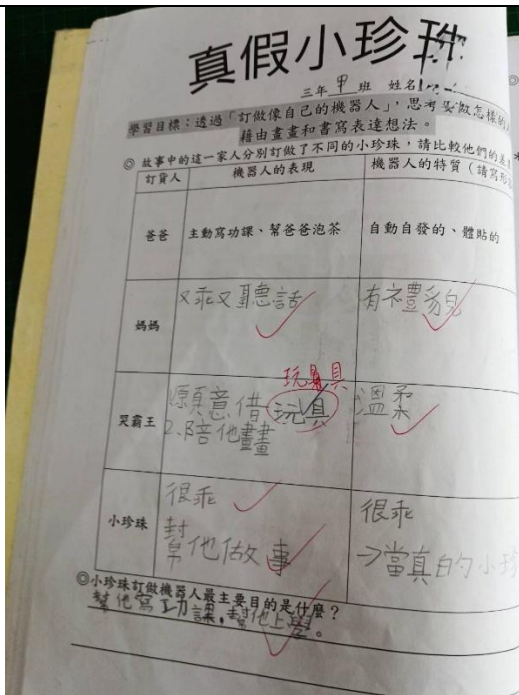 真假小珍珠
三年甲班 姓名
學習目標：透過「訂做像自己的機器人」，思考要做怎樣的
藉由畫畫和書寫表達想法。
◎ 故事中的這一家人分別訂做了不同的小珍珠，請比較他們的差
訂貨人 機器人的表現 機器人的特質（請寫形
爸爸 主動寫功課、幫爸爸泡茶 自動自發的、體貼的
媽媽 又乖又聽話 有禮貌
玩具
哭霸王 願意借玩具 溫柔
2、陪他畫畫
小珍珠 很乖 很乖
幫他做事 →當真的小珍
◎小珍珠訂做機器人最主要目的是什麼？
幫他寫功課，幫他上學。